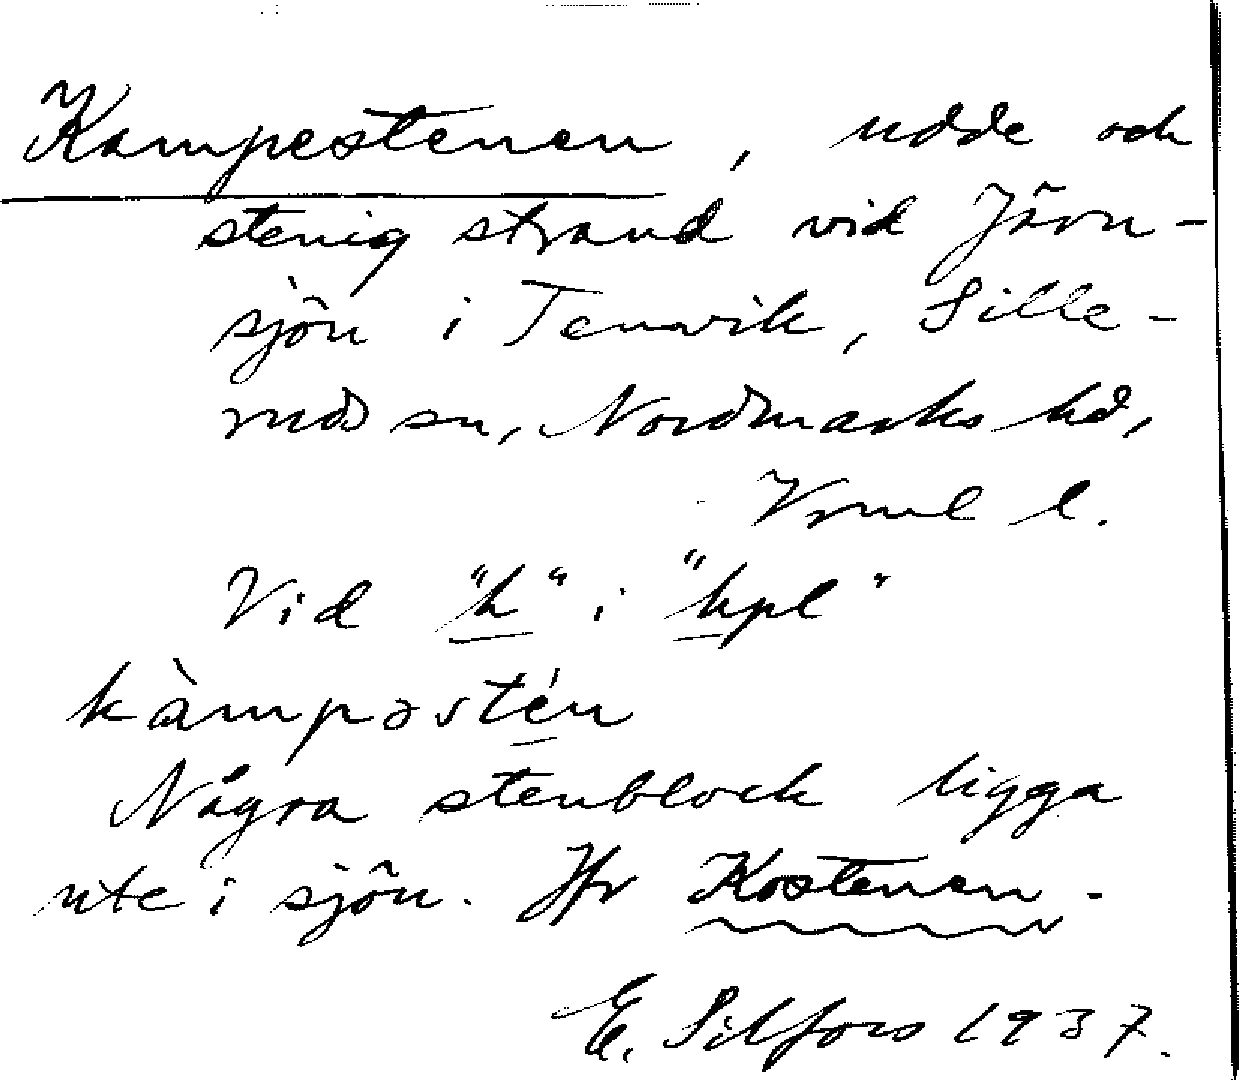 Kampestenen, udde och
stenig strand vid Järn-
sjön i Tenvik, Sille-
ruds sn, Nordmarks hd,
Vrml l.
Vid "k" i "kpl"
kàmpəstén
Några stenblock ligga
ute i sjön. Jfr Kostenen.
E. Silfors 1937.